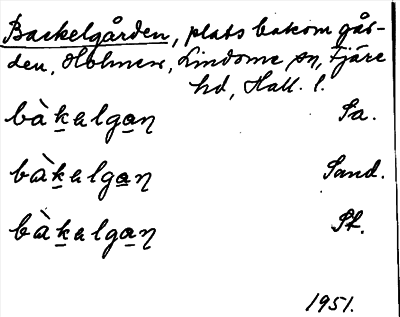 Backelgården, plats bakom går-
den, Holmen, Lindome sn, Fjäre
hd, Hall. l.
bàk̲alga̲n Sa.
bàk̲alga̲n Sand.
bàk̲alga̲n St.
1951.